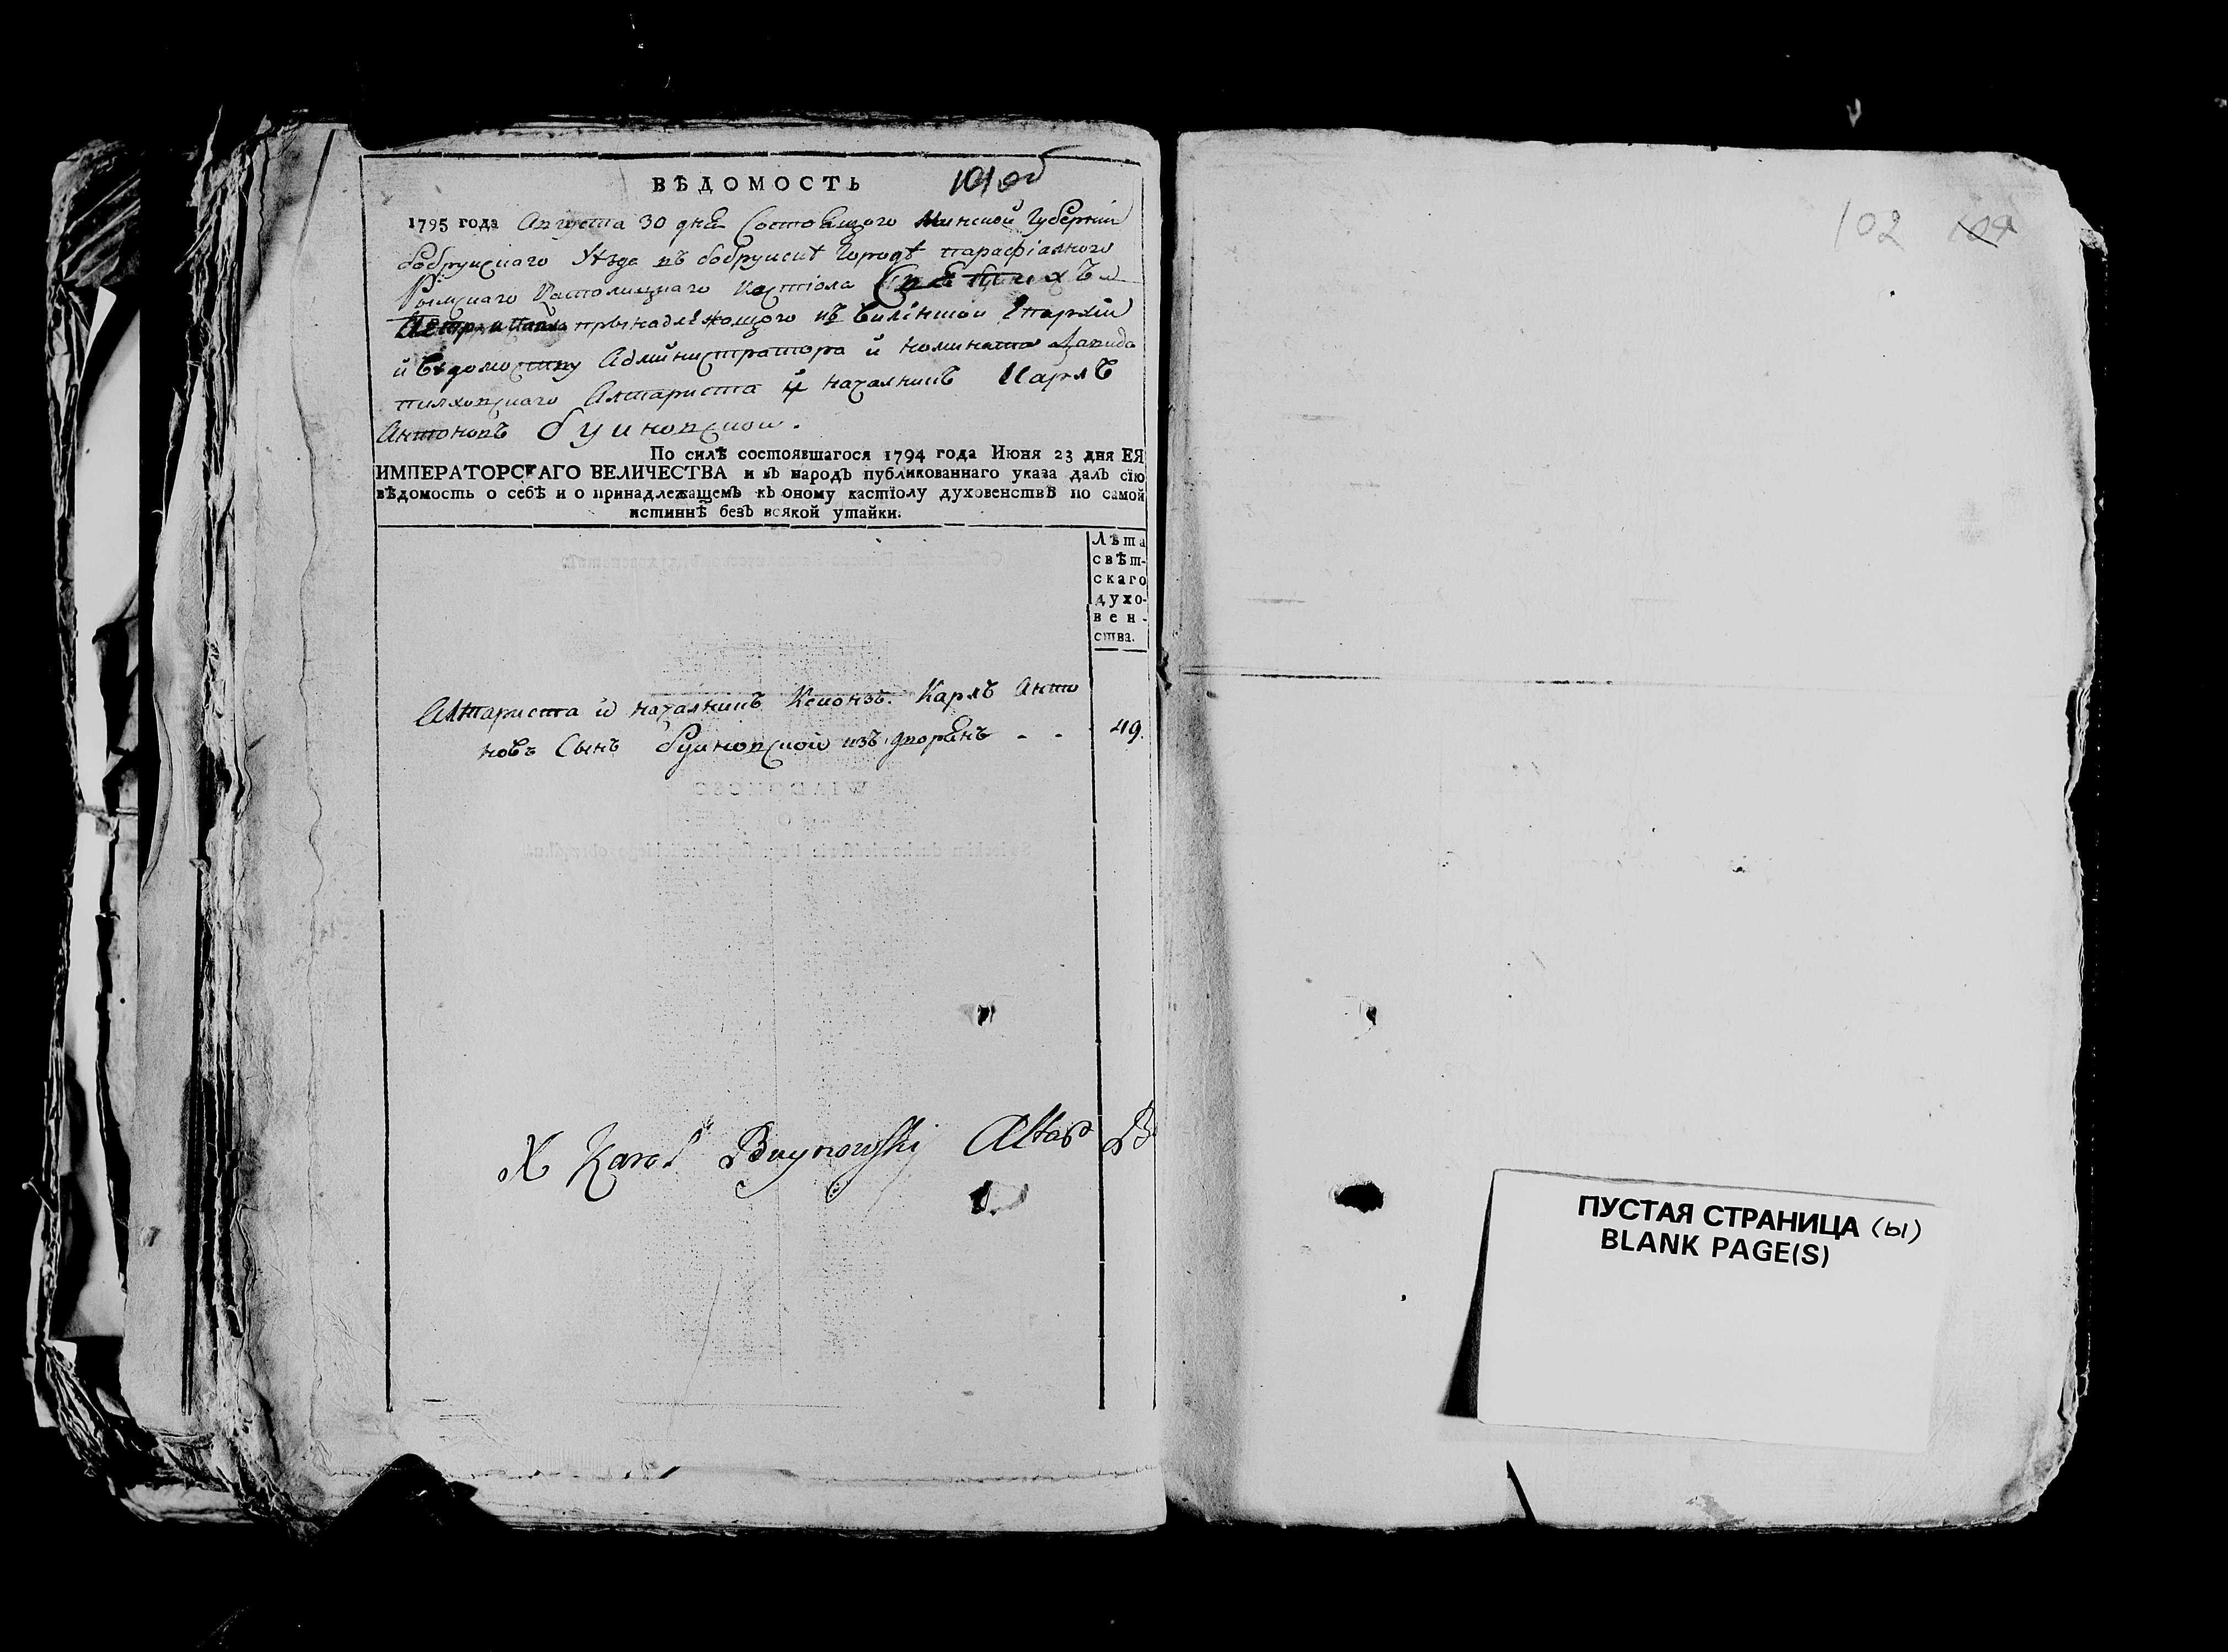 ВѢДОМОСТЬ
101 об
1795 года Августа 30 дня Состоящого Минской Губернїи
бобруиского Уѣзда въ бобруискѣ Городѣ парафїалного
Римского Католицкаго Костїола Святыхъ
Петра и Павла принадлежащого къ виленшои Епархїи
и ведомству Администратора и номината
Алтариста и началникъ Карлъ
Антоновъ буиновской.
По силѣ состоявшагося 1794 года Июня 23 дня ЕЯ
ИМПЕРАТОРСКАГО ВЕЛИЧЕСТВА и въ народъ публикованнаго указа далъ сїю
вѣдомость о себѣ и о принадлежащемъ къ оному кастїолу духовенствѣ по самой
истиннѣ безъ всякой утайки.
Лѣта
свѣт-
скаго
духо-
вен-
ства.
Алтариста и началникъ Ксионзъ. Карлъ Анто
новъ Сынъ буиновской изъ дворянъ - - 49.
X Karol Buynowski Altar B
102 104
ПУСТАЯ СТРАНИЦА (ы)
BLANK PAGE(S)